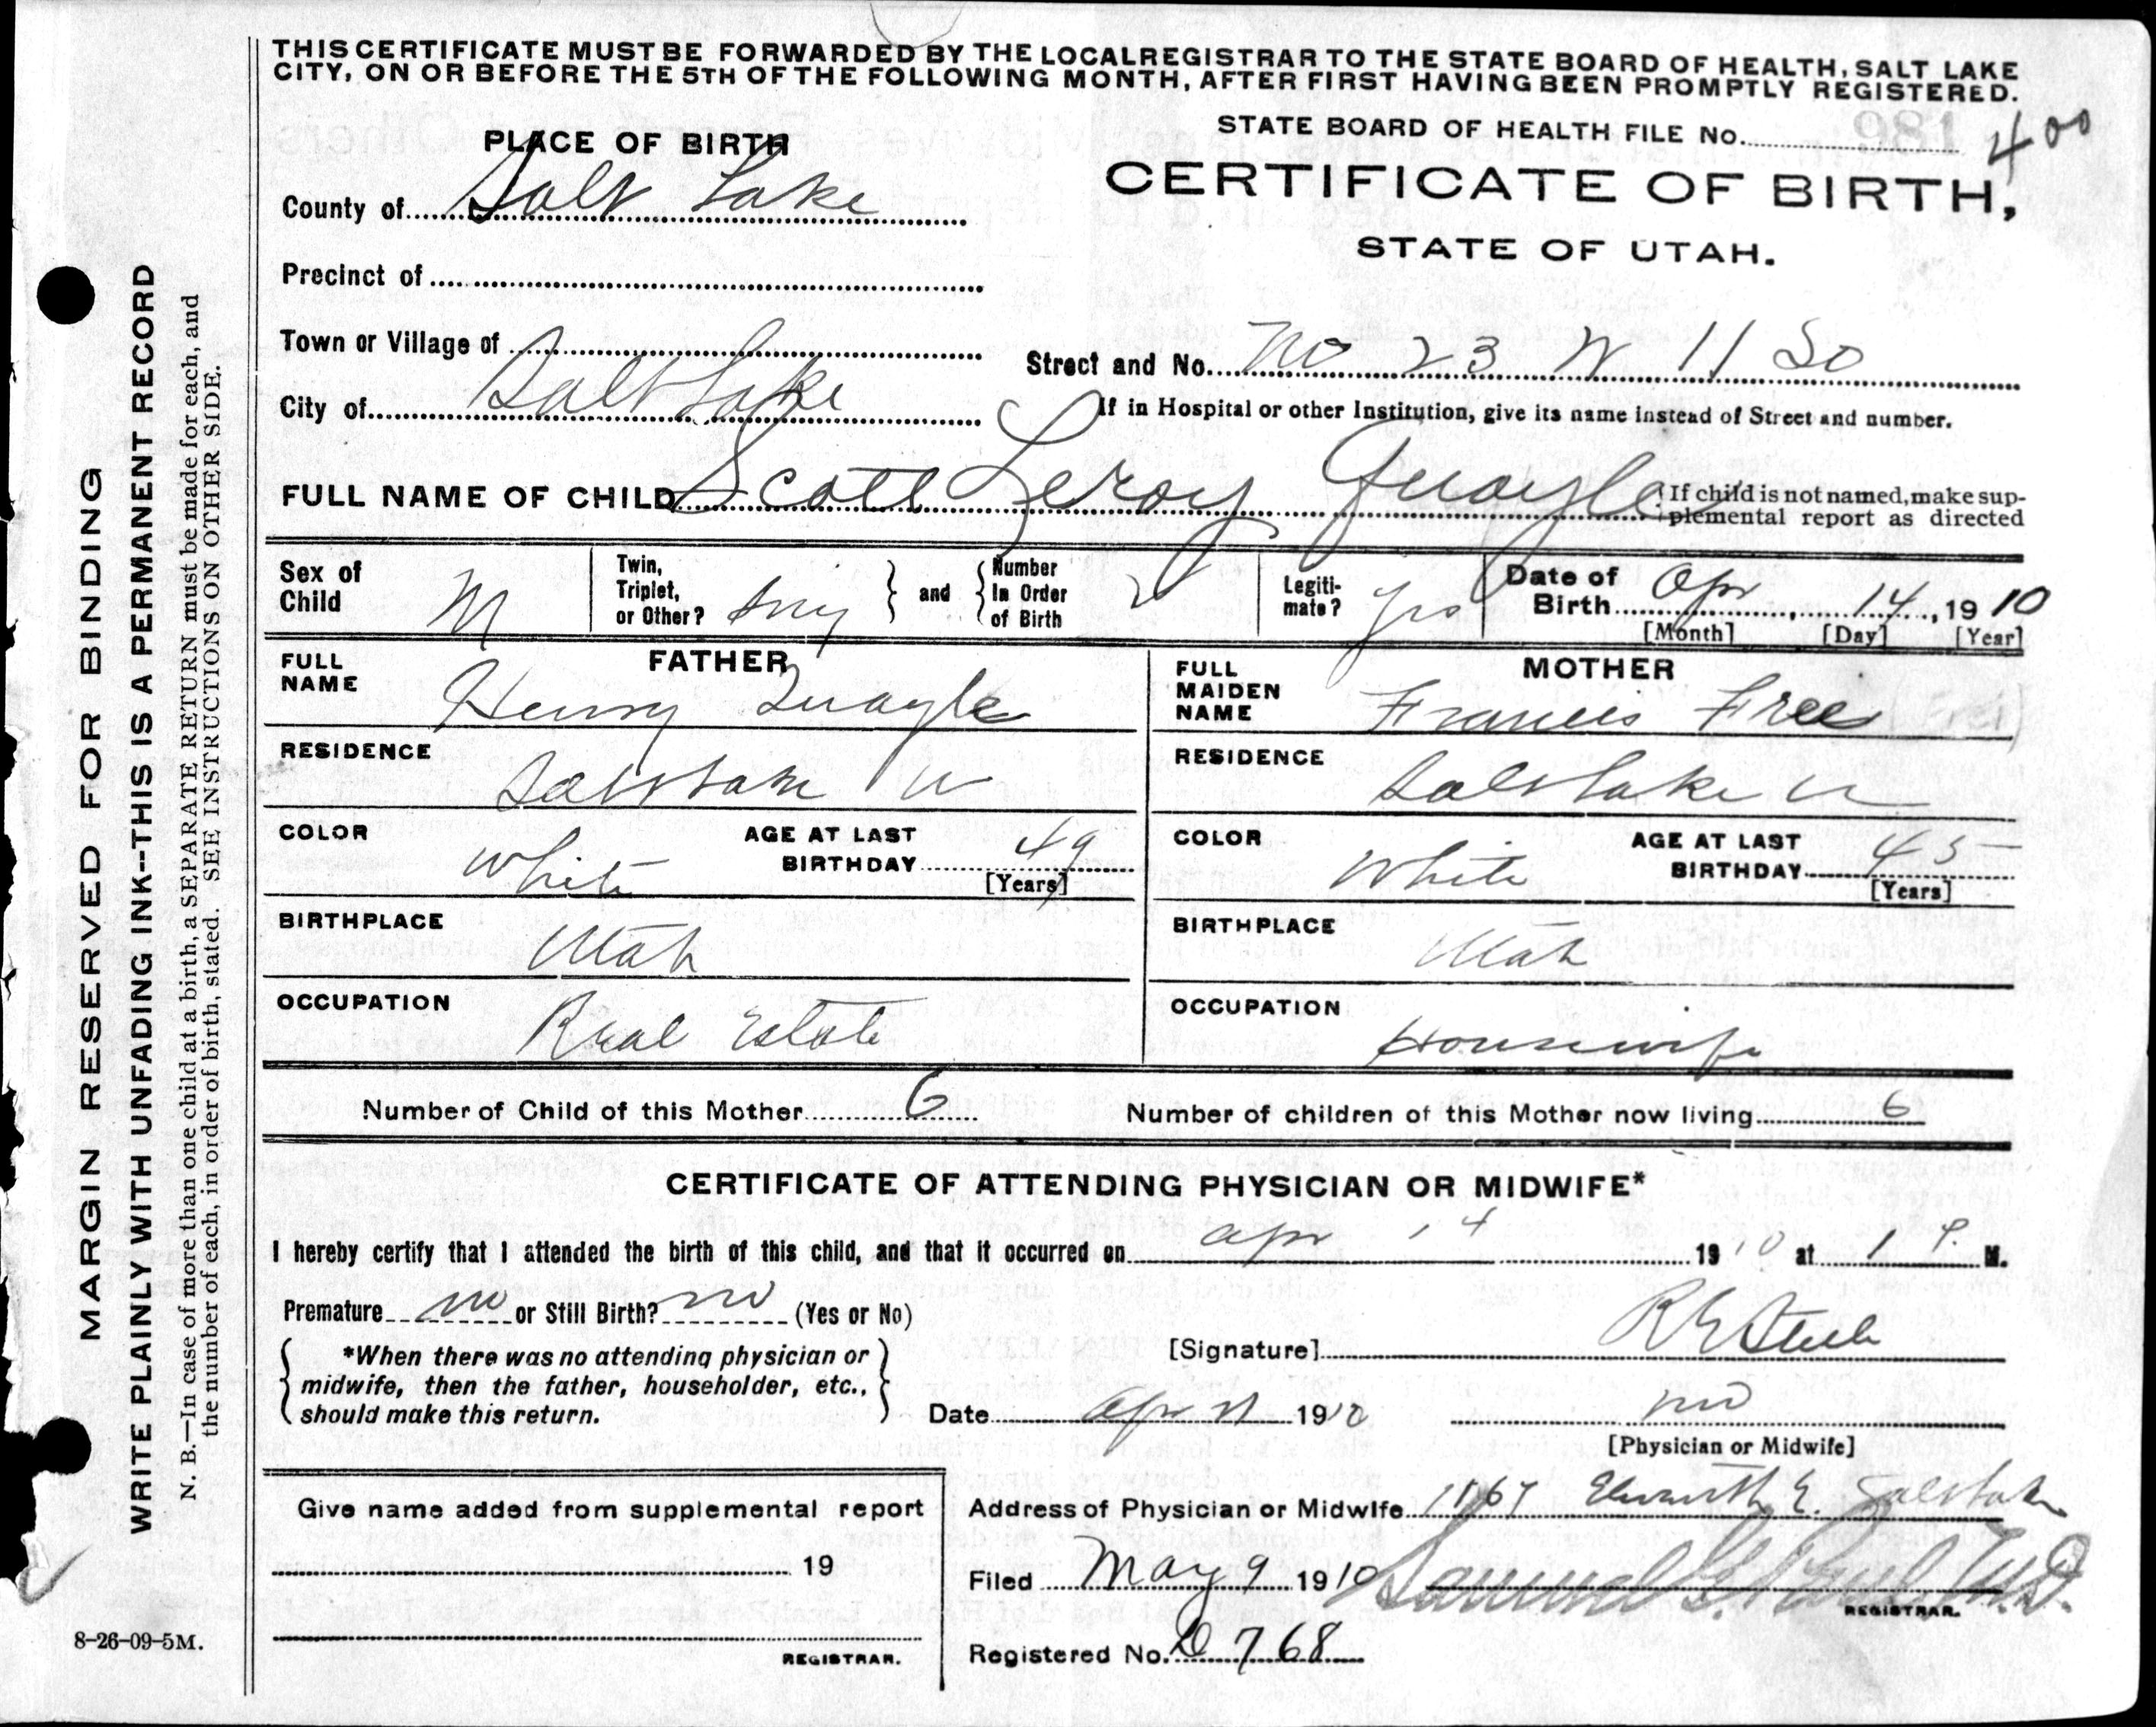 THIS CERTIFICATE MUST BE FORWARDED BY THE LOCAL REGISTRAR TO THE STATE BOARD OF HEALTH, SALT LAKE
CITY, ON OR BEFORE THE 5TH OF THE FOLLOWING MONTH, AFTER FIRST HAVING BEEN PROMPTLY REGISTERED.
STATE BOARD OF HEALTH FILE No. 981 400
PLACE OF BIRTH
CERTIFICATE OF BIRTH,
STATE OF UTAH.
County of Salt Lake
Precinct of
Town or Village of
Street and No. No 23 W 11 So
City of Salt Lake
If in Hospital or other Institution, give its name instead of Street and number.
FULL NAME OF CHILD Scott Leroy Quayle
If child is not named, make sup-
plemental report as directed
Sex of Child M
Twin, Triplet, or Other? Sing and Number In Order of Birth
Legiti-mate? yes
Date of Birth Apr 14, 1910
[Month] [Day] [Year]
FATHER
FULL NAME Henry Quayle
RESIDENCE Salt Lake U
COLOR White
AGE AT LAST BIRTHDAY 49
[Years]
BIRTHPLACE Utah
OCCUPATION Real Estate
MOTHER
FULL MAIDEN NAME Francis Free (Frei)
RESIDENCE Salt Lake U
COLOR White
AGE AT LAST BIRTHDAY 45
[Years]
BIRTHPLACE Utah
OCCUPATION Housewife
Number of Child of this Mother 6
Number of children of this Mother now living 6
CERTIFICATE OF ATTENDING PHYSICIAN OR MIDWIFE*
I hereby certify that I attended the birth of this child, and that it occurred on Apr 14 1910 at 1 P. M.
Premature no or Still Birth? no (Yes or No)
*When there was no attending physician or
midwife, then the father, householder, etc.,
should make this return.
[Signature] R E Steele
Date Apr 1910
MD
[Physician or Midwife]
Give name added from supplemental report
19
REGISTRAR.
Address of Physician or Midwife 1167 E. Salt Lake
Filed May 9 1910 Samuel G. Paul, M.D.
REGISTRAR.
Registered No. D 768
8-26-09-5M.
MARGIN RESERVED FOR BINDING
WRITE PLAINLY WITH UNFADING INK--THIS IS A PERMANENT RECORD
N. B.—In case of more than one child at a birth, a SEPARATE RETURN must be made for each, and
the number of each, in order of birth, stated. SEE INSTRUCTIONS ON OTHER SIDE.